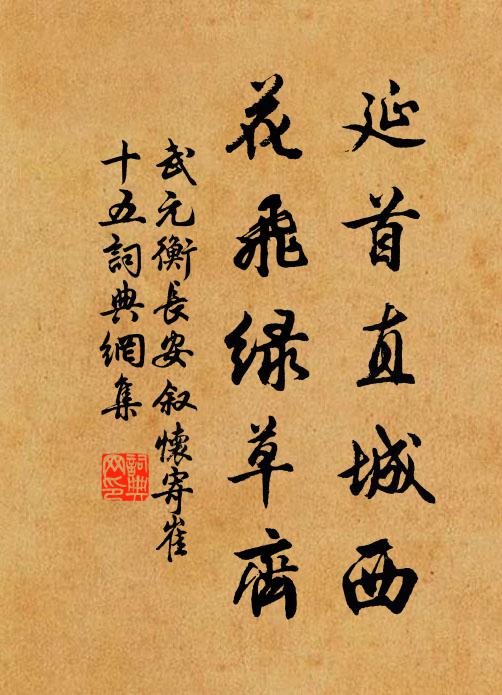 延首直城西
花飛绿草齊
武元衡長安叙懷寄崔
十五詞典網集
詞典
网印